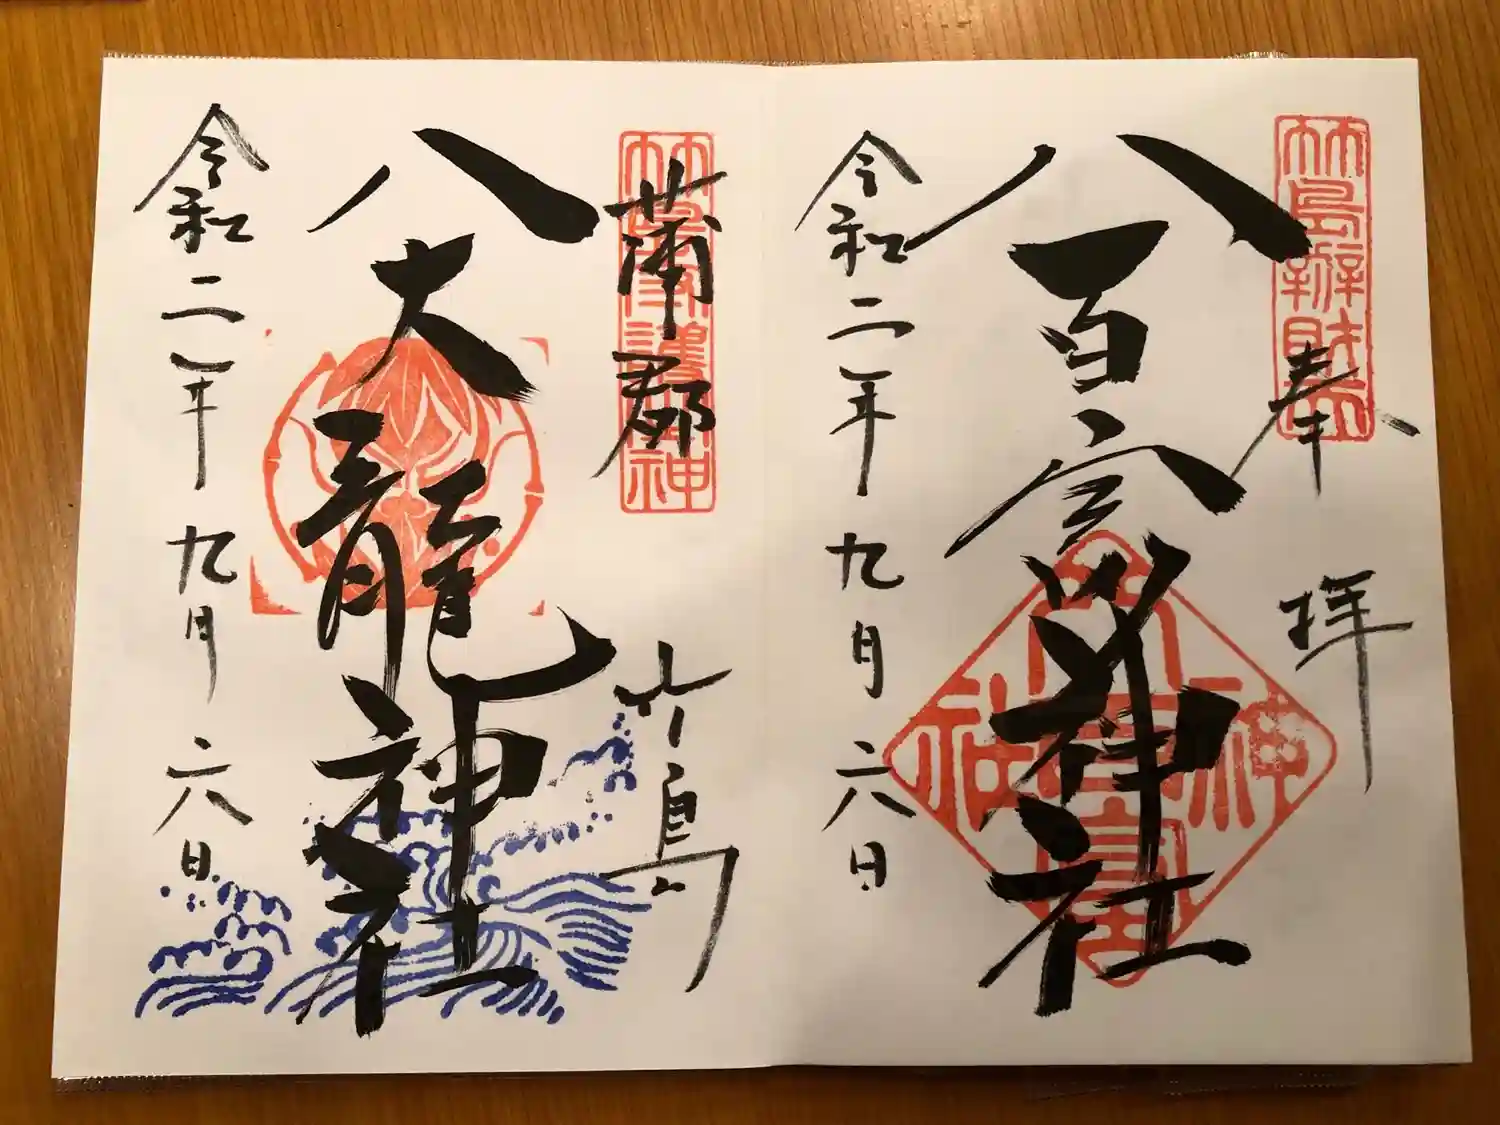 奉拝
竹島辨財天
八百富神社
令和二年九月六日
蒲郡 竹島
八大龍神社
令和二年九月六日